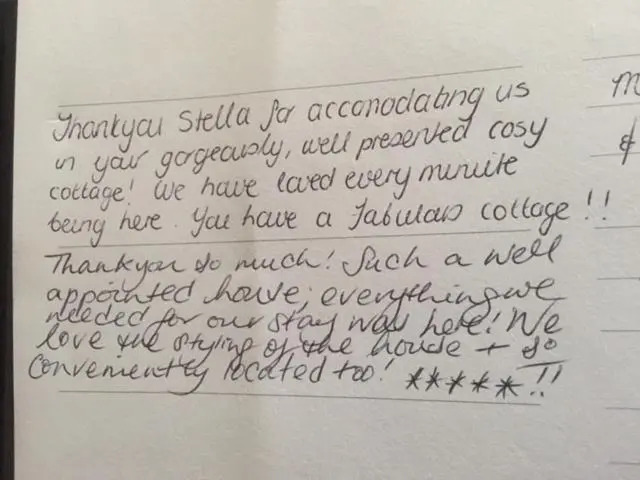 Thankyou Stella for accomodating us
in your gorgeously, well presented cosy
cottage! We have loved every minute
being here. You have a fabulous cottage!!
Thankyou so much! Such a well
appointed house; everything we
needed for our stay was here! We
love the styling of the house + so
conveniently located too! *****!!
M
&